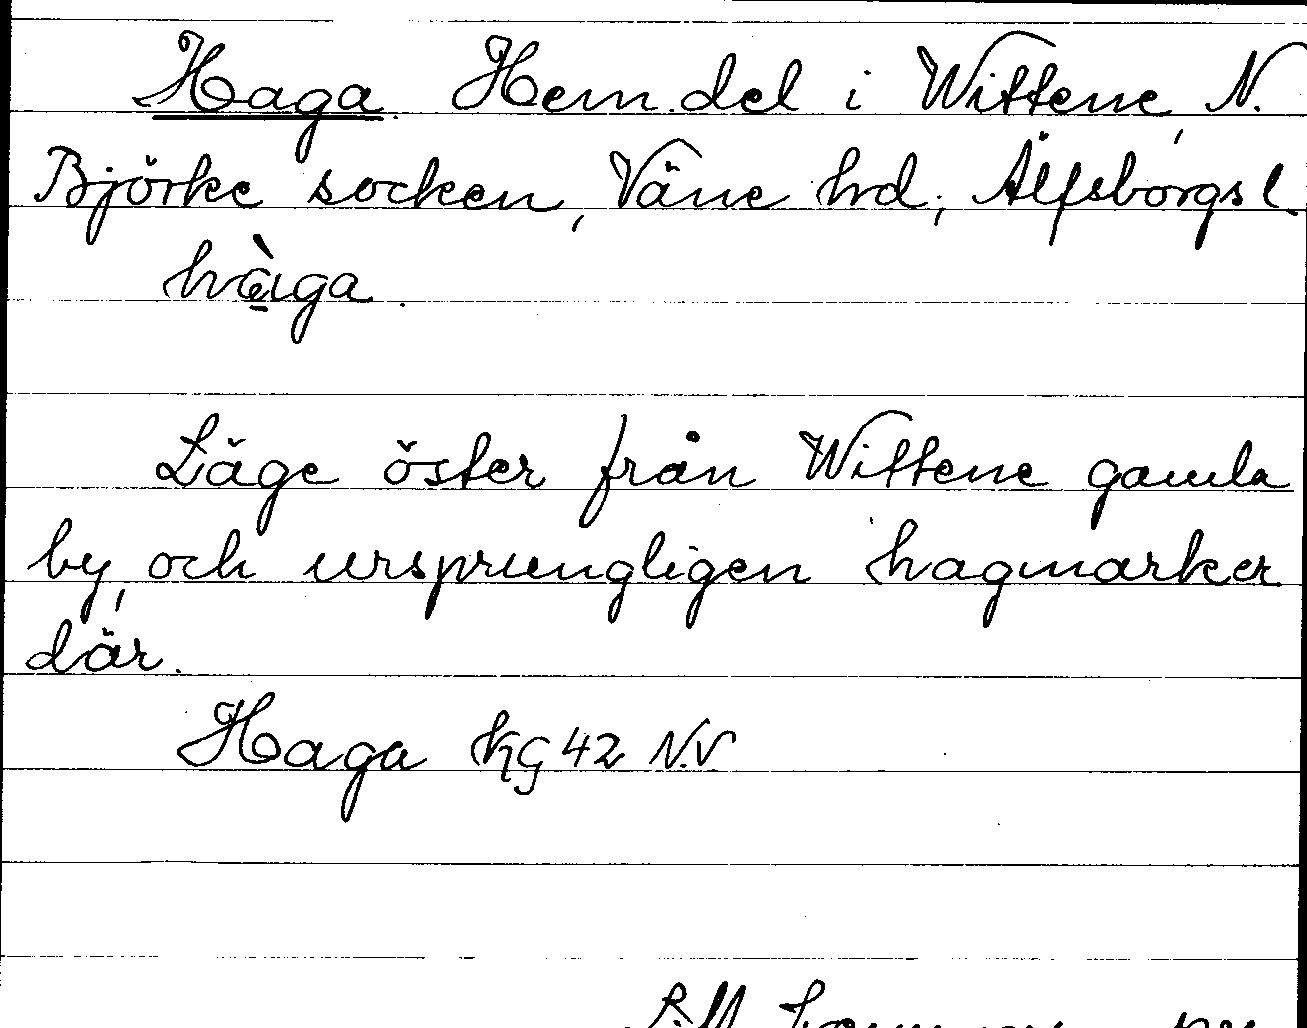 Haga. Hem.del i Wittene, N.
Björke socken, Väne hrd; Älfsborgs l.
hàga.
Läge öster från Wittene gamla
by, och ursprungligen hagmarker
där.
Haga KG 42 N.V